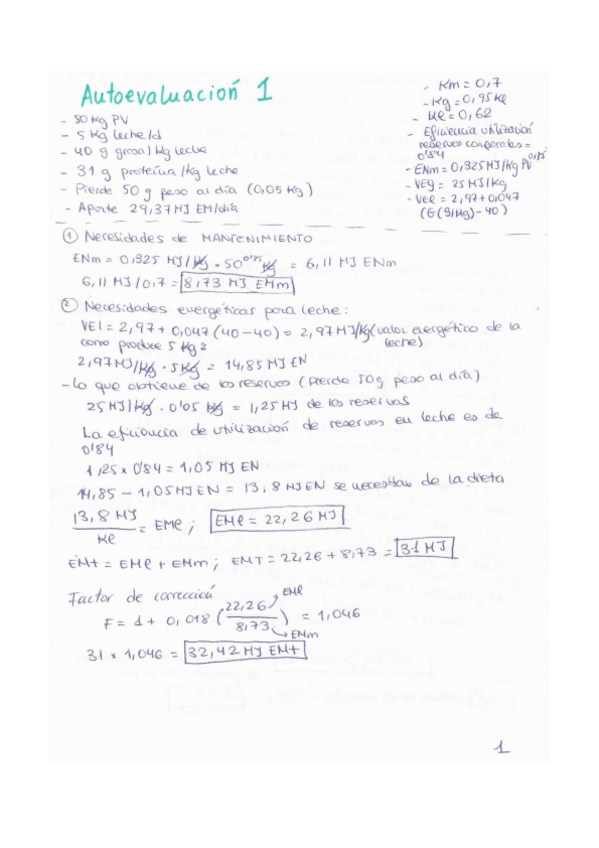 Autoevaluación 1
- 50 kg PV
- 5 kg leche/d
- 40 g grasa/kg leche
- 31 g proteína/kg leche
- Pierde 50 g peso al día (0,05 kg)
- Aporte 29,37 MJ EM/día
- Km = 0,7
- Kg = 0,95 Kl
- Kl = 0,62
- Eficiencia utilización
reservas corporales =
0'84
- ENm = 0,325 MJ/kg PV^0,75
- VEg = 25 MJ/kg
- VEl = 2,97 + 0,047
(G(g/kg) - 40)
① Necesidades de MANTENIMIENTO
ENm = 0,325 MJ/kg · 50^0'75 kg = 6,11 MJ ENm
6,11 MJ/0,7 = 8,73 MJ EMm
② Necesidades energéticas para leche:
VEl = 2,97 + 0,047 (40-40) = 2,97 MJ/kg (valor energético de la
leche)
como produce 5 kg:
2,97 MJ/kg · 5 kg = 14,85 MJ EN
- Lo que obtiene de las reservas (Pierde 50g peso al día)
25 MJ/kg · 0'05 kg = 1,25 MJ de las reservas
La eficiencia de utilización de reservas en leche es de
0'84
1,25 x 0'84 = 1,05 MJ EN
14,85 - 1,05 MJ EN = 13,8 MJ EN se necesitan de la dieta
13,8 MJ / Kl = EMl ; EMl = 22,26 MJ
EMt = EMl + EMm ; EMT = 22,26 + 8,73 = 31 MJ
Factor de corrección
F = 1 + 0,018 (22,26 / 8,73) = 1,046
EMl
ENm
31 x 1,046 = 32,42 MJ EMt
1